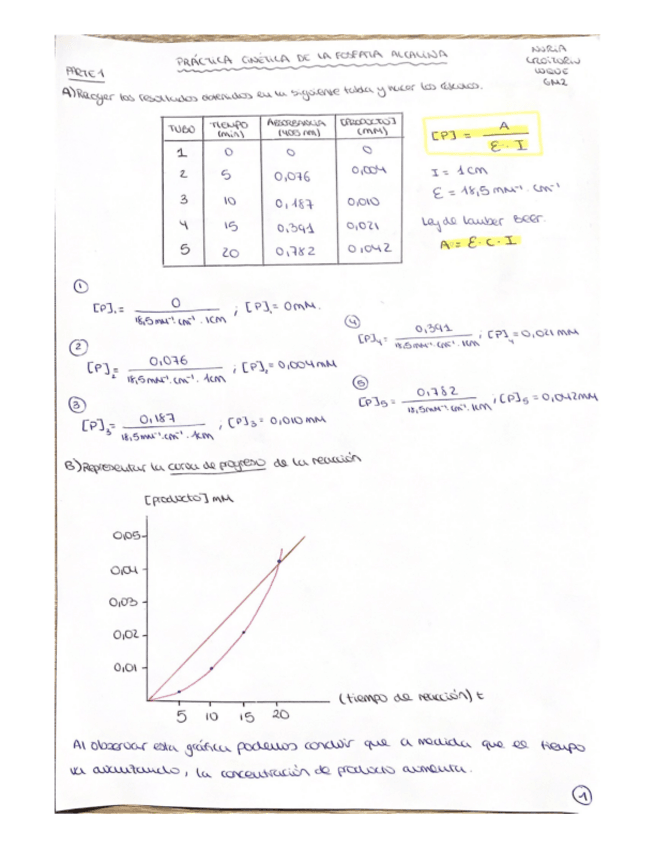 PRÁCTICA CINÉTICA DE LA FOSFATA ALCALINA
NURIA
GM2
PARTE 1
A) Recoger los resultados obtenidos en la siguiente tabla y hacer los cálculos.
TUBO TIEMPO (min) ABSORBANCIA (405 nm) [PRODUCTO] (mM)
1 0 0 0
2 5 0,076 0,004
3 10 0,187 0,010
4 15 0,391 0,021
5 20 0,782 0,042
[P] = A / ε · I
I = 1 cm
ε = 18,5 mM⁻¹ · cm⁻¹
Ley de Lamber Beer.
A = ε · C · I
① [P]₁ = 0 / 18,5 mM⁻¹ · cm⁻¹ · 1cm ; [P]₁ = 0 mM.
② [P]₂ = 0,076 / 18,5 mM⁻¹ · cm⁻¹ · 1cm ; [P]₂ = 0,004 mM
③ [P]₃ = 0,187 / 18,5 mM⁻¹ · cm⁻¹ · 1cm ; [P]₃ = 0,010 mM
④ [P]₄ = 0,391 / 18,5 mM⁻¹ · cm⁻¹ · 1cm ; [P]₄ = 0,021 mM
⑤ [P]₅ = 0,782 / 18,5 mM⁻¹ · cm⁻¹ · 1cm ; [P]₅ = 0,042 mM
B) Representar la curva de progreso de la reacción
[producto] mM
0,05
0,04
0,03
0,02
0,01
5 10 15 20
(tiempo de reacción) t
Al observar esta gráfica podemos concluir que a medida que el tiempo
va avanzando, la concentración de producto aumenta.
1